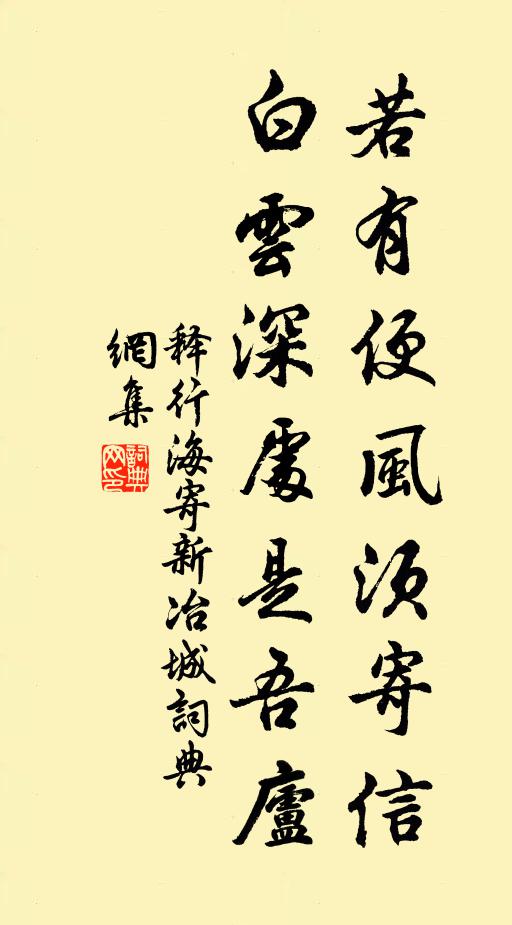 若有便風須寄信
白雲深處是吾廬
释行海寄新冶城詞典
網集
詞典
网印